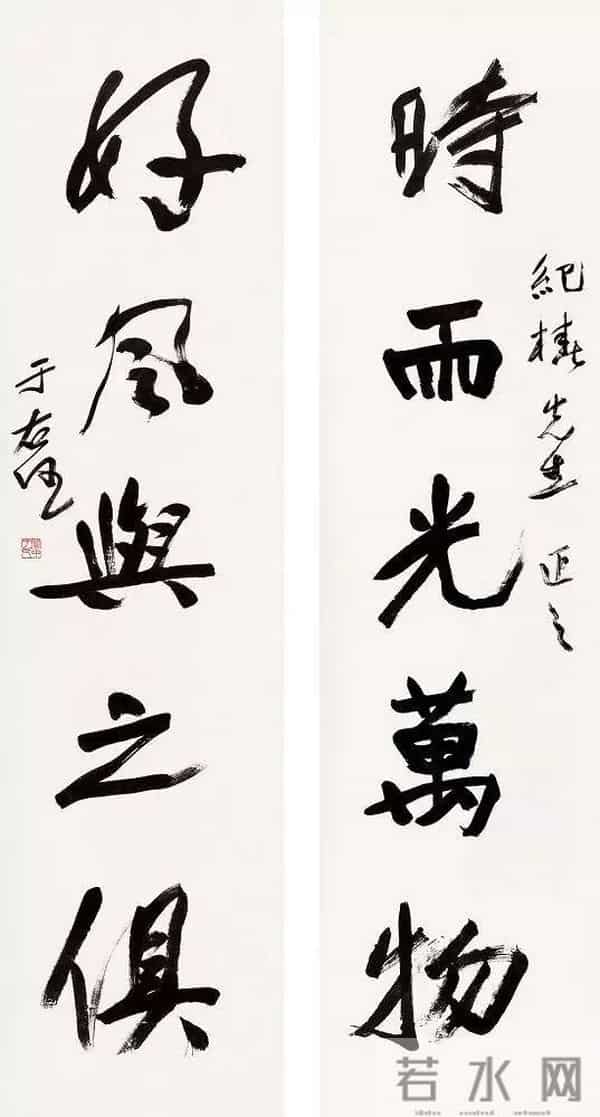 紀椿先生正之
時雨光萬物
好風與之俱
于右任
若水网